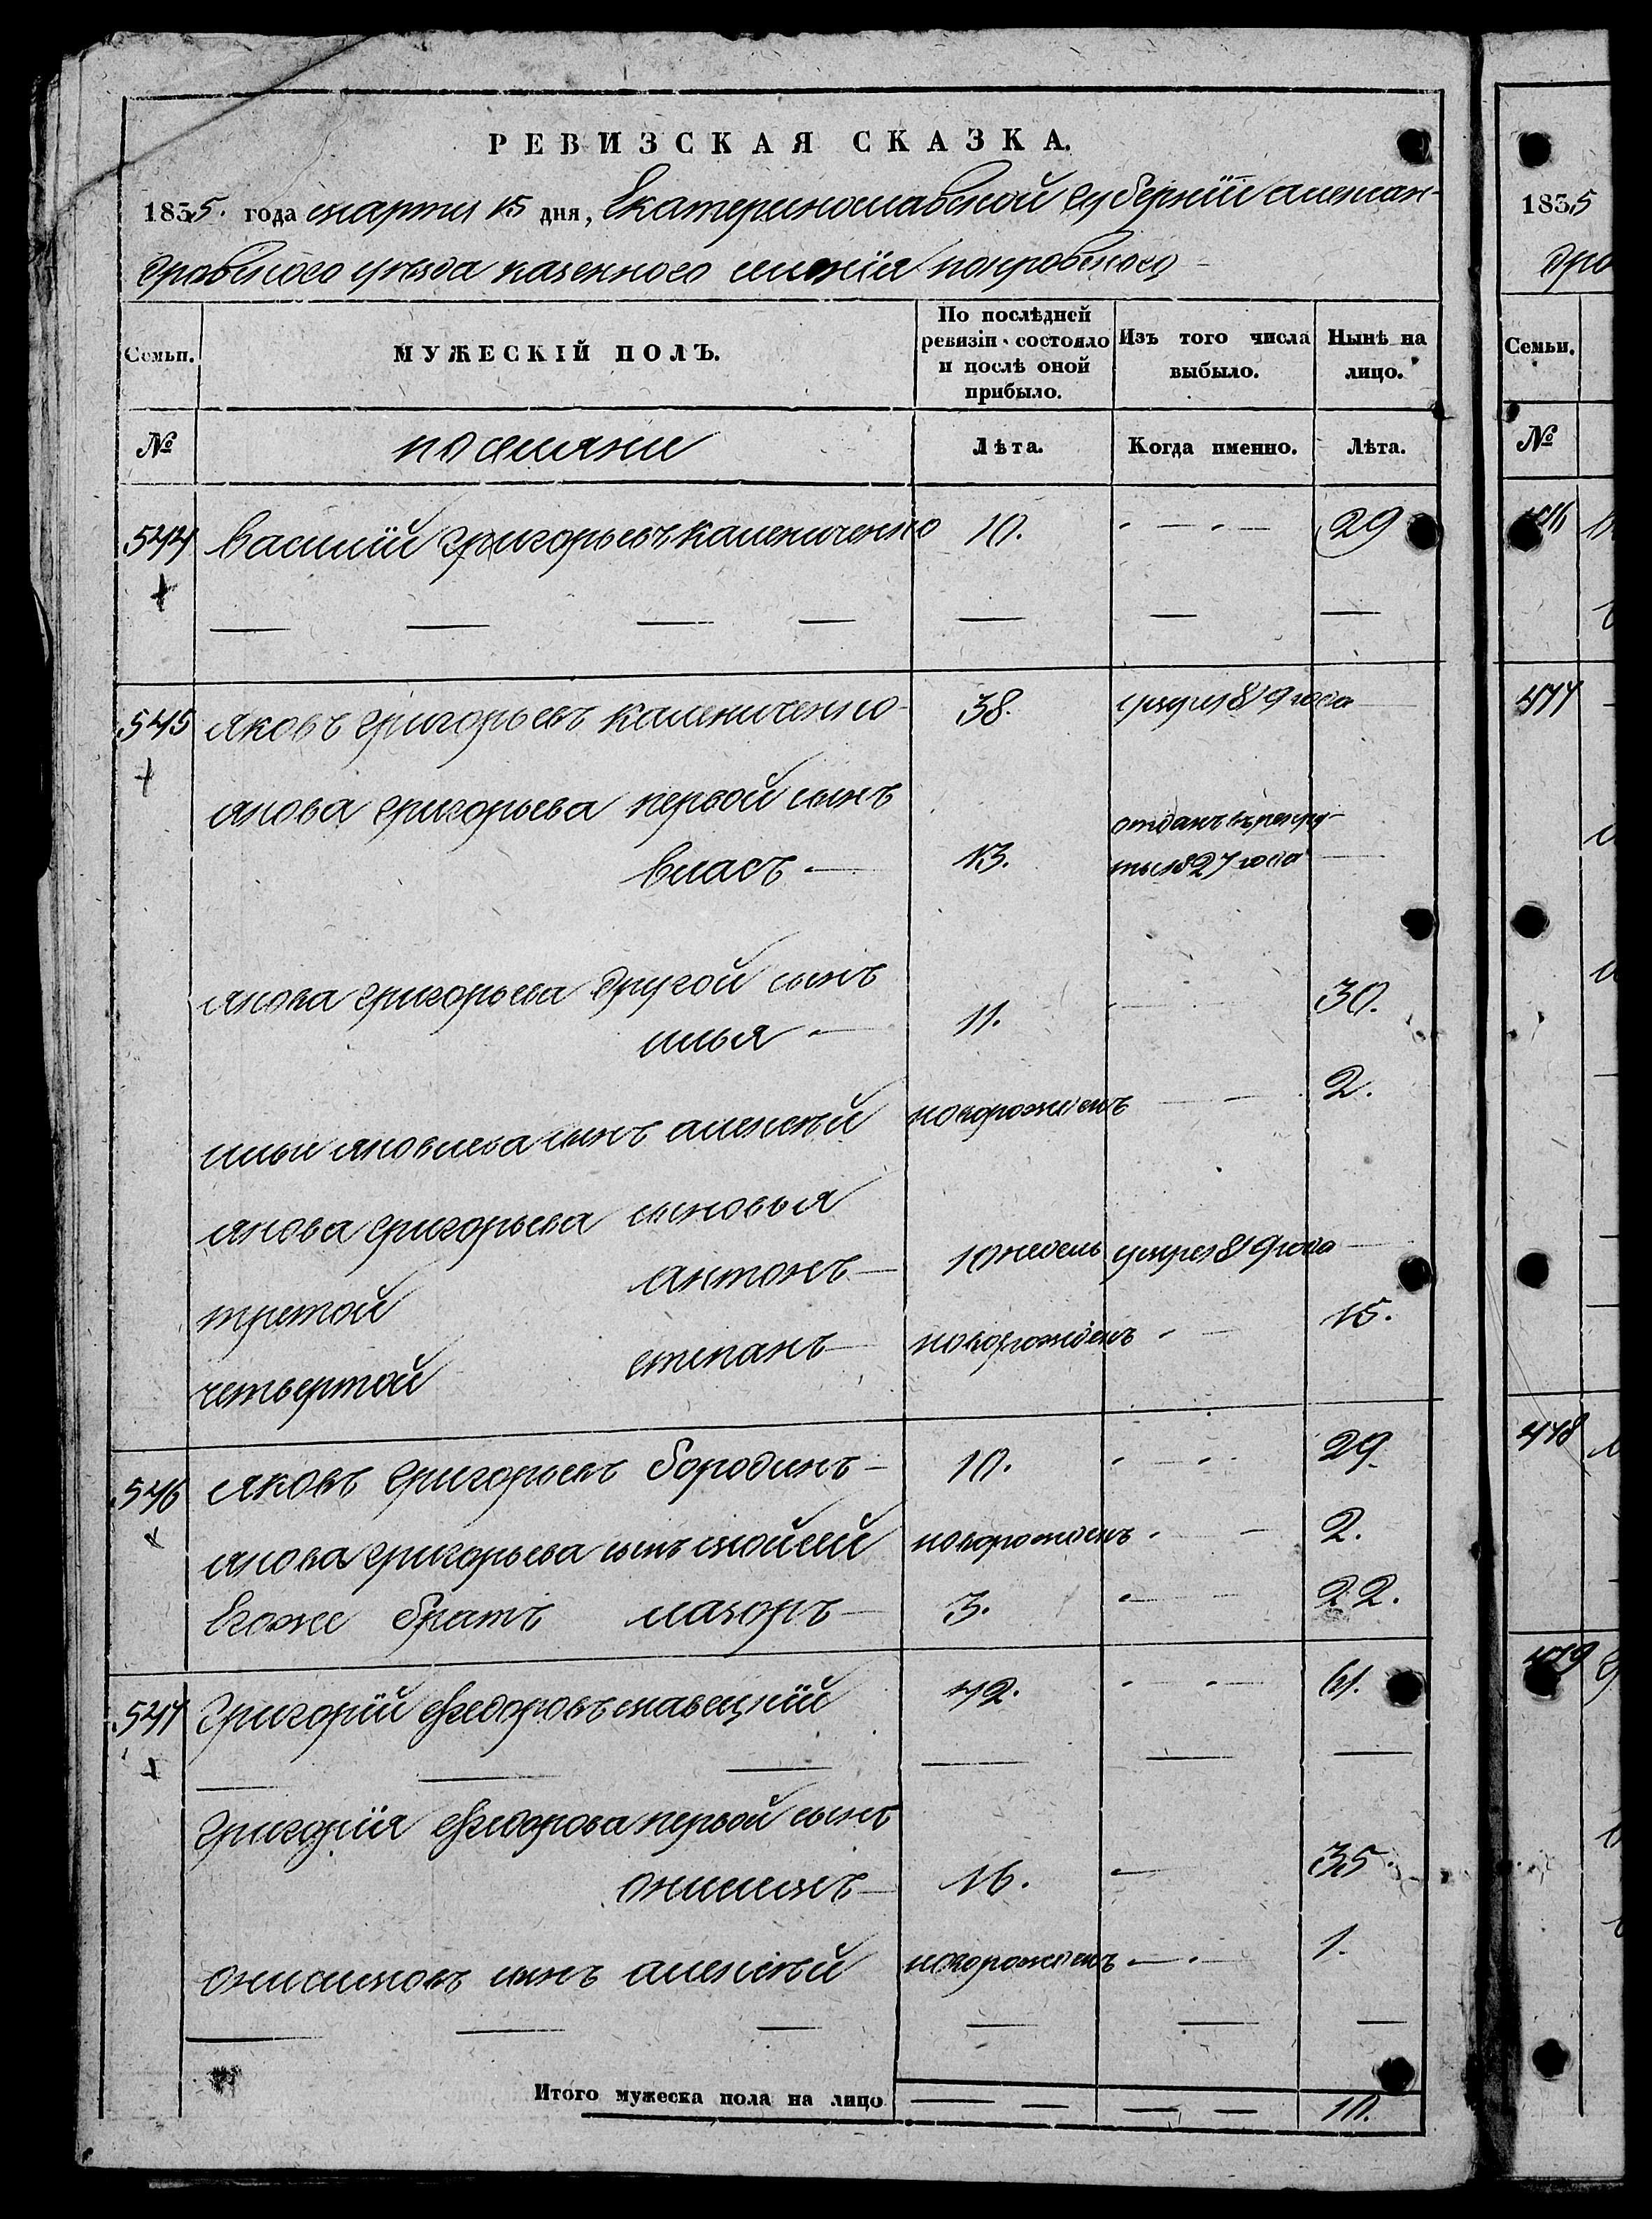 РЕВИЗСКАЯ СКАЗКА.
1835. года марта 15 дня, Екатеринославской губернïи алексан-
дровского уезда казенного селенïя покровского
Семьи. МУЖЕСКІЙ ПОЛЪ. По послѣдней ревизіи состояло и послѣ оной прибыло. Изъ того числа выбыло. Нынѣ на лицо.
№ поселяне Лѣта. Когда именно. Лѣта.
544 василïй григорьевъ калениченко 10. 29
545 яковъ григорьевъ калениченко 38. умре 819 года
якова григорьева первой сынъ
власъ 13. отданъ въ рекру-
ты 1827 года
якова григорьева другой сынъ
илья 11. 30.
ильи яковлева сынъ алексѣй новорожденъ 2.
якова григорьева сыновья
третой антонъ 10 недель умре 1819 года
четвертой степанъ новорожденъ 15.
546 яковъ григорьевъ бородинъ 10. 29.
якова григорьева сынъ мойсей новорожденъ 2.
его же братъ назоръ 3. 22.
547 григорïй федоровъ 42. 61.
григорïя федорова первой сынъ
онисимъ 16. 35.
онисимовъ сынъ алексѣй новорожденъ 1.
Итого мужеска пола на лицо 10.
1835
дро
Семьи.
№
477
478
479